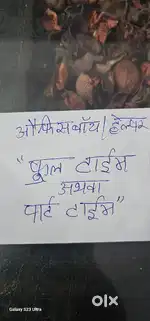 ऑफिसबॉय/हेल्पर
"फुल टाईम
अथवा
पार्ट टाईम"
Galaxy S23 Ultra
olx